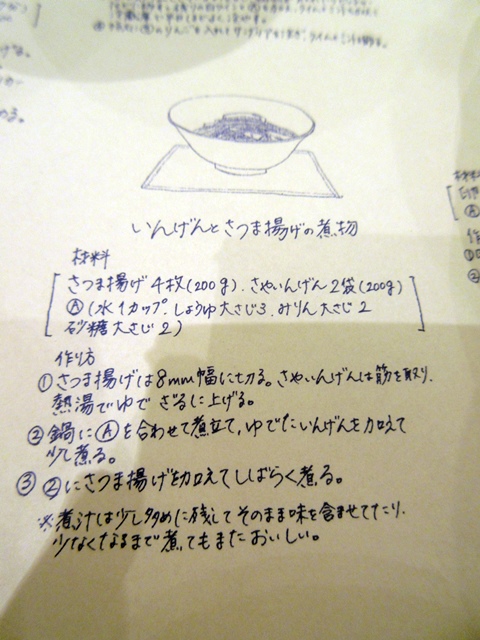 いんげんとさつま揚げの煮物
材料
さつま揚げ4枚(200g).さやいんげん2袋(200g)
Ⓐ(水1カップ.しょうゆ大さじ3.みりん大さじ2
砂糖大さじ2)
作り方
①さつま揚げは8mm幅に切る。さやいんげんは筋を取り、
熱湯でゆでざるに上げる。
②鍋にⒶを合わせて煮立て、ゆでたいんげんを加えて
少し煮る。
③②にさつま揚げを加えてしばらく煮る。
※煮汁は少し多めに残してそのまま味を含ませてたり、
少なくなるまで煮てもまたおいしい。
材料